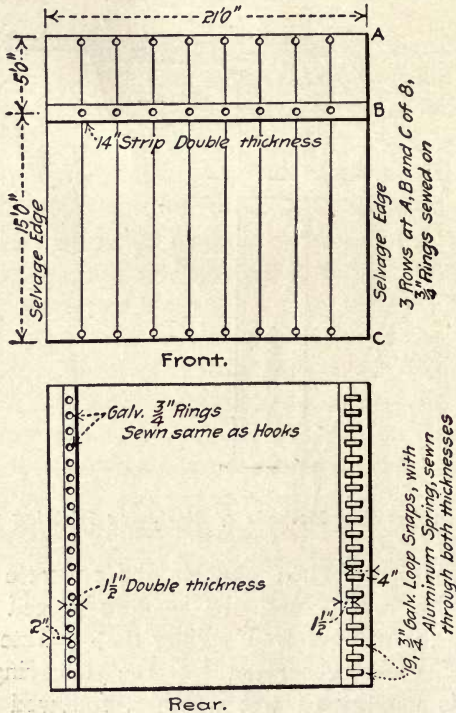 21'0"
A
5'0"
B
14" Strip Double thickness
15'0"
Selvage Edge
Selvage Edge
3 Rows at A, B and C of 8,
3/4" Rings sewed on
C
Front.
Galv. 3/4" Rings
Sewn same as Hooks
1 1/2" Double thickness
2"
4"
1 1/2"
19, 3/4" Galv. Loop Snaps, with
Aluminum Spring, sewn
through both thicknesses
Rear.